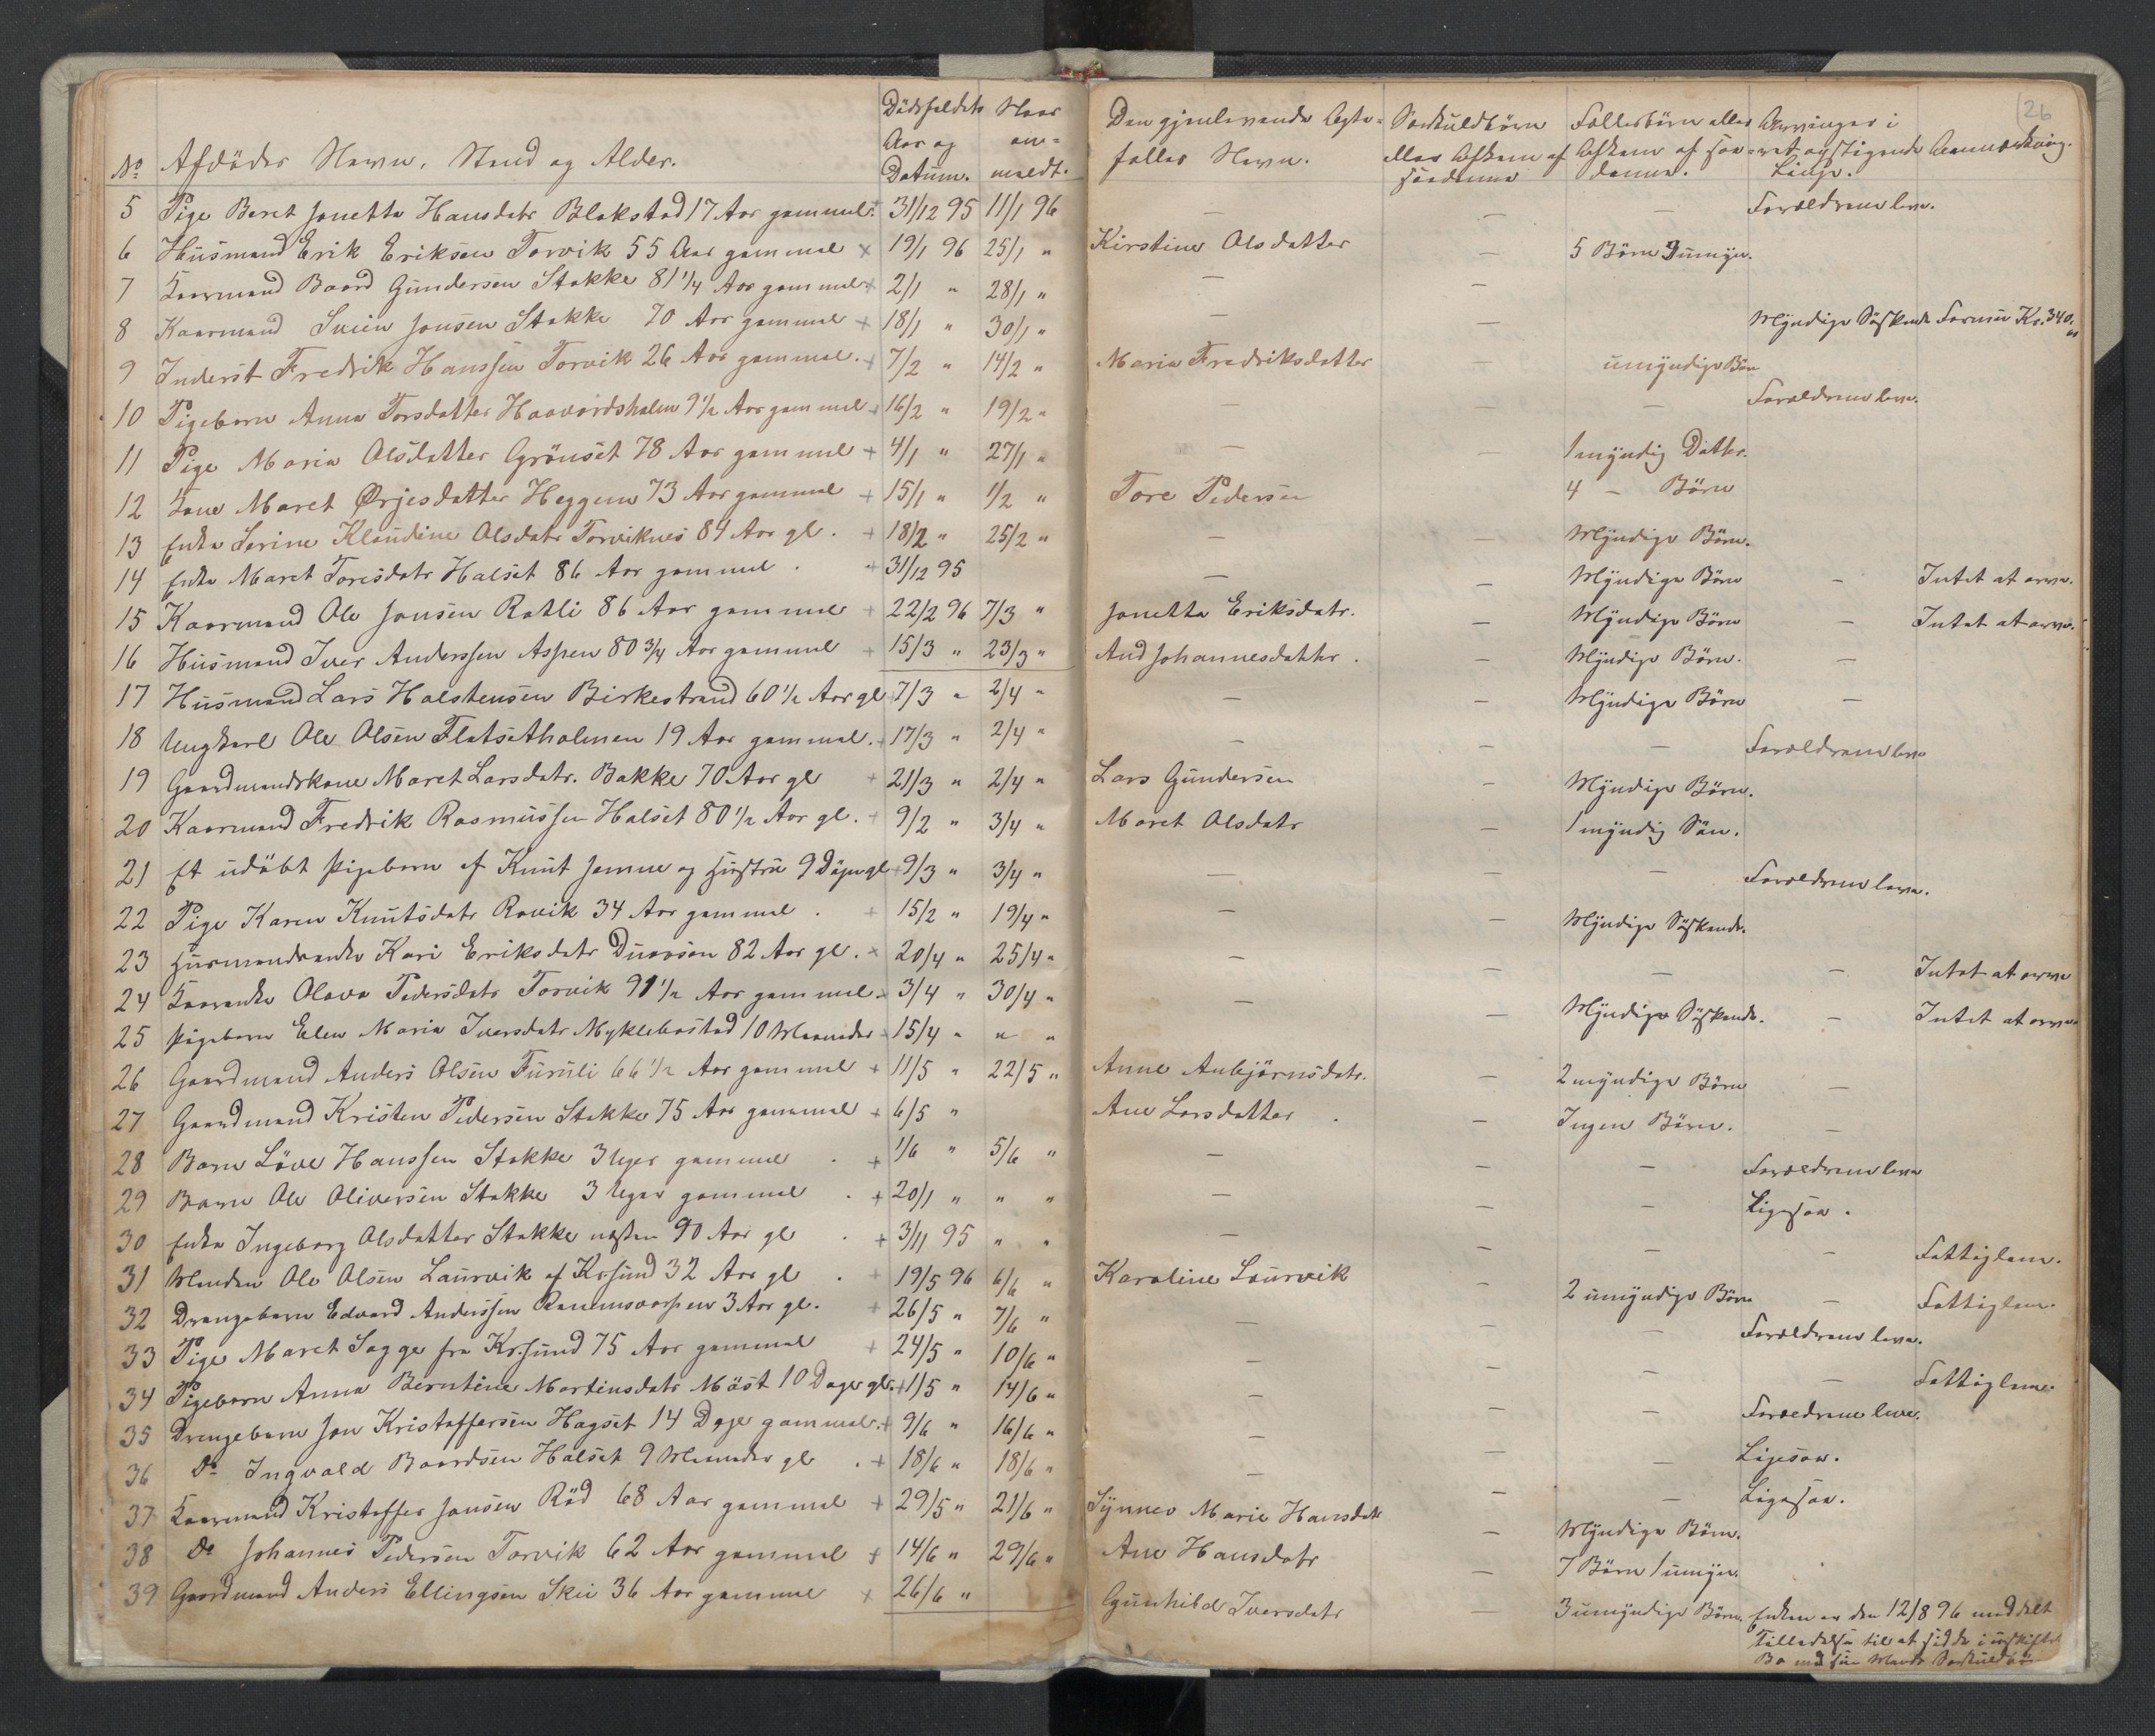 26
No Afdödes Navn, Stand og Alder. Dödsfaldets Aar og Datum. Naar anmeldt. Den gjenlevende Ægtefælles Navn. Særkuldbörn eller Afkom af saadanne Fællesbörn eller Afkom af saadanne. Arvinger i ret opstigende Linje. Anmerkning.
5 Pige Beret Jonetta Hansdatr Blakstad 17 Aar gammel. + 31/12 95 11/1 96 — — — Forældrene leve.
6 Husmand Erik Eriksen Torvik 55 Aar gammel + 19/1 96 25/1 " Kirstine Olsdatter — 5 Börn 3 umyn.
7 Kaarmand Baard Gundersen Stokke 81 1/4 Aar gammel + 2/1 " 28/1 " — —
8 Kaarmand Svein Jonsen Stokke 70 Aar gammel + 18/1 " 30/1 " — — Myndige Söskende Formue Kr. 340.
9 Inderst Fredrik Hanssen Torvik 26 Aar gammel. + 7/2 " 14/2 " Maria Fredriksdatter — umyndige Börn
10 Pigebarn Anna Torsdatter Haavardsholm 9 1/2 Aar gammel + 16/2 " 19/2 " — — — Forældrene leve.
11 Pige Maria Olsdatter Grönset 78 Aar gammel + 4/1 " 27/1 " — — 1 myndig Datter.
12 Kone Maret Ørjesdatter Heggem 73 Aar gammel + 15/1 " 1/2 " Tore Pedersen 4 — Börn
13 Enke Serine Klaudine Olsdatr Torviknes 84 Aar gl. + 18/2 " 25/2 " — — Myndige Börn.
14 Enke Maret Toresdatr Halset 86 Aar gammel. + 31/12 95 — — Myndige Börn — Intet at arve.
15 Kaarmand Ole Jonsen Ratli 86 Aar gammel + 22/2 96 7/3 " Jonetta Eriksdatr. — Myndige Börn — Intet at arve.
16 Husmand Iver Anderssen Aspen 80 3/4 Aar gammel + 15/3 " 23/3 " And Johannesdatter. — Myndige Börn. —
17 Husmand Lars Halstensen Birkestrand 60 1/2 Aar gl + 7/3 " 2/4 " — — Myndige Börn —
18 Ungkarl Ole Olsen Flatsetholmen 19 Aar gammel. + 17/3 " 2/4 " — — — Forældrene leve
19 Gaardmandskone Maret Larsdatr. Bakke 70 Aar gl + 21/3 " 2/4 " Lars Gundersen — Myndige Börn.
20 Kaarmand Fredrik Rasmussen Halset 80 1/2 Aar gl. + 9/2 " 3/4 " Maret Olsdatr — 1 myndig Sön.
21 Et udöbt Pigebarn af Knut Jemne og Hustru 9 Dage gl + 9/3 " 3/4 " — — — Forældrene leve.
22 Pige Karen Knutsdatr Ravik 34 Aar gammel. + 15/2 " 19/4 " — — Myndige Söskende.
23 Husmandsenke Kari Eriksdatr 82 Aar gl. + 20/4 " 25/4 " — — — — Intet at arve
24 Kaarenke Olava Pedersdatr Torvik 91 1/2 Aar gammel + 3/4 " 30/4 " — — Myndige Söskende. — Intet at arve
25 Pigebarn Elen Maria Iversdatr Myklebostad 10 Maaneder + 15/4 " " "
26 Gaardmand Anders Olsen Furuli 66 1/2 Aar gammel + 11/5 " 22/5 " Anne Anbjörnsdatr. — 2 myndige Börn —
27 Gaardmand Kristen Pedersen Stokke 75 Aar gammel + 6/5 " Ane Larsdatter. — Ingen Börn. —
28 Barn Löve Hanssen Stokke 3 Uger gammel. + 1/6 " 5/6 " — — — Forældrene leve
29 Barn Ole Oliversen Stokke 3 Uger gammel. + 20/1 " " " — — — Ligesaa.
30 Enke Ingeborg Olsdatter Stokke næsten 90 Aar gl. + 3/11 95 " " — — — — Fattiglem.
31 Manden Ole Olsen Laurvik af Kr.sund 32 Aar gl. + 19/5 96 6/6 " Karoline Laurvik — 2 umyndige Börn — Fattiglem.
32 Drengebarn Edvard Anderssen 3 Aar gl. + 26/5 " 7/6 " — — — Forældrene leve.
33 Pige Maret Sagge fra Kr.sund 75 Aar gammel + 24/5 " 10/6 " — — — Fattiglem.
34 Pigebarn Anna Berntine Martinsdatr Möst 10 Dage gl. + 1/5 " 14/6 " — — — Forældrene leve.
35 Drengebarn Jon Kristoffersen Hagset 14 Dage gammel. + 9/6 " 16/6 " — — — Ligesaa.
36 Do Ingvald Baardsen Halset 9 Maaneder gl. + 18/6 " 18/6 " — — — Ligesaa.
37 Kaarmand Kristoffer Jonsen Röd 68 Aar gammel + 29/5 " 21/6 " Synnev Marie Hansdatr — Myndige Börn.
38 Do Johannes Pedersen Torvik 62 Aar gammel + 14/6 " 29/6 " Ane Hansdatr — 7 Börn 1 umyn.
39 Gaardmand Anders Ellingsen Skei 36 Aar gammel + 26/6 " Gunhild Iversdatr — 3 umyndige Börn. Enken er den 12/8 96 meddelt
Tilladelse til at sidde i uskiftet
Bo med sin Mands Særkuldbörn